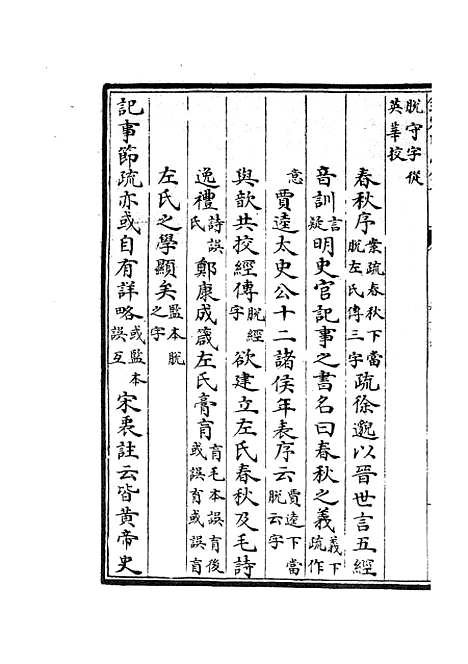 脫守字從英華校
春秋序案疏春秋下當脫左氏傳三字疏徐邈以晉世言五經
音訓言疑明史官記事之書名曰春秋之義義下疏作
意賈逵太史公十二諸侯年表序云賈逵下當脫云字
與歆共校經傳脫經字欲建立左氏春秋及毛詩
逸禮詩誤氏鄭康成箴左氏膏肓肓毛本誤育後或誤育或誤盲
左氏之學顯矣監本脫之字
記事節疏亦或自有詳略或監本誤互宋衷註云皆黃帝史